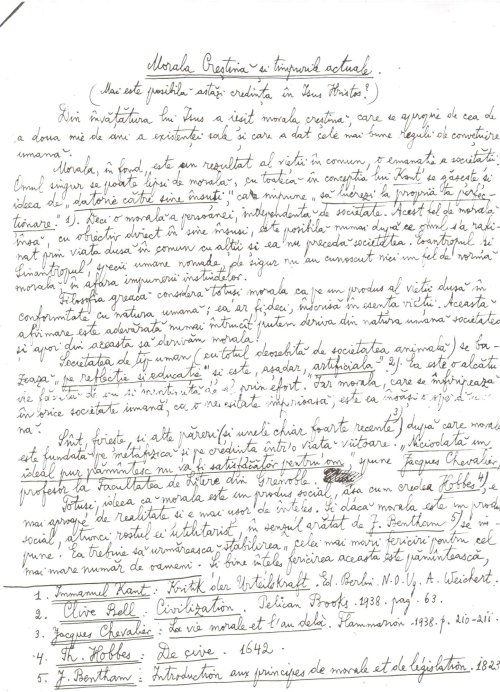 Morala Creștină și timpurile actuale.
(Mai este posibilă astăzi credința în Isus Hristos?)
Din învățătura lui Isus a ieșit morala creștină, care se apropie de cea de
a doua mie de ani a existenței sale și care a dat cele mai bune reguli de conviețuire
umană.
Morala, în fond, este un rezultat al vieții în comun, o emanație a societății.
Omul singur se poate lipsi de morală, cu toate că în concepția lui Kant se găsește și
ideea de "datorie către sine însuși" care impune "să lucrezi la propria ta perfec-
ționare." 1). Deci o morală a persoanei, independentă de societate. Acest fel de morală
însă, cu obiectiv direct în sine însuși, este posibilă numai după ce omul s'a rafi-
nat prin viața dusă în comun cu alții și ea nu precedă societatea. Eoantropul și
Sinantropul, specii umane nomade, de sigur nu au cunoscut nici un fel de normă
morală în afara impunerii instinctelor.
Filosofia greacă considera totuși morala ca pe un produs al vieții dusă în
conformitate cu natura umană; ea ar fi, deci, înscrisă în esența vieții. Această
afirmare este adevărată numai întrucât putem deriva din natura umană societatea
și apoi din aceasta să derivăm morala!
Societatea de tip uman (cu totul deosebită de societatea animală) se ba-
zează "pe reflecție și educație" și este, așadar, artificială" 2). Ea este o alcătu
vie făcută de om și menținută de el prin efort. Iar morala, care se înfiripează
în orice societate umană, ca o necesitate imperioasă, este ea însăși
nă.
Sunt, firește, și alte păreri (și unele chiar foarte recente 3) după care morala
este fundată pe metafizică și pe credința într'o viață viitoare: "Niciodată un
ideal pur pământesc nu va fi satisfăcător pentru om" spune Jacques Chevalier,
profesor la Facultatea de Litere din Grenoble.
Totuși, ideea că morala este un produs social, așa cum credea Hobbes 4), e
mai aproape de realitate și e mai ușor de înțeles. Și dacă morala este un produs
social, atunci rostul ei utilitarist, în sensul arătat de J. Bentham 5) se im-
pune. Ea trebuie să urmărească stabilirea "celei mai mari fericiri pentru cel
mai mare număr de oameni. Și bine înțeles fericirea aceasta este pământească,
1. Immanuel Kant: Kritik der Urteilskraft. Ed. Berlin. N.O.V. A. Weichert.
2. Clive Bell: Civilization. Pelican Books. 1938. pag. 63.
3. Jacques Chevalier: La vie morale et l'au delà. Flammarion 1938. p. 210-211.
4. Th. Hobbes: De cive. 1642.
5. J. Bentham: Introduction aux principes de morale et de législation. 1823